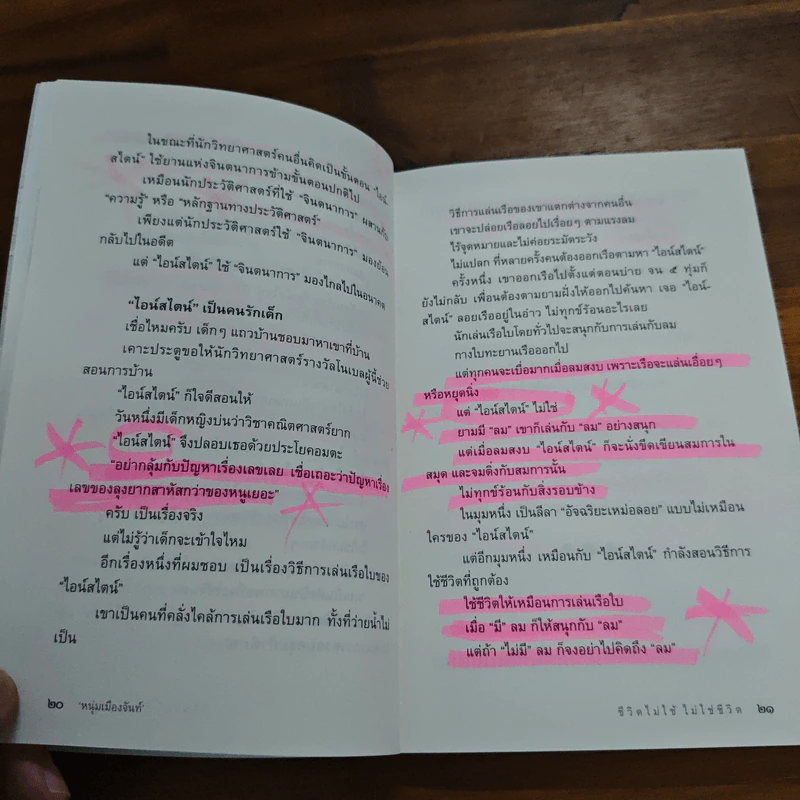 ในขณะที่นักวิทยาศาสตร์คนอื่นคิดเป็นขั้นตอน “ไอน์-
สไตน์” ใช้ยานแห่งจินตนาการข้ามขั้นตอนปกติไป
เหมือนนักประวัติศาสตร์ที่ใช้ “จินตนาการ” ผสานกับ
“ความรู้” หรือ “หลักฐานทางประวัติศาสตร์”
เพียงแต่นักประวัติศาสตร์ใช้ “จินตนาการ” มองย้อน
กลับไปในอดีต
แต่ “ไอน์สไตน์” ใช้ “จินตนาการ” มองไกลไปในอนาคต
“ไอน์สไตน์” เป็นคนรักเด็ก
เชื่อไหมครับ เด็กๆ แถวบ้านชอบมาหาเขาที่บ้าน
เคาะประตูขอให้นักวิทยาศาสตร์รางวัลโนเบลผู้นี้ช่วย
สอนการบ้าน
“ไอน์สไตน์” ก็ใจดีสอนให้
วันหนึ่งมีเด็กหญิงบ่นว่าวิชาคณิตศาสตร์ยาก
“ไอน์สไตน์” จึงปลอบเธอด้วยประโยคอมตะ
“อย่ากลุ้มกับปัญหาเรื่องเลขเลย เชื่อเถอะว่าปัญหาเรื่อง
เลขของลุงยากสาหัสกว่าของหนูเยอะ”
ครับ เป็นเรื่องจริง
แต่ไม่รู้ว่าเด็กจะเข้าใจไหม
อีกเรื่องหนึ่งที่ผมชอบ เป็นเรื่องวิธีการเล่นเรือใบของ
“ไอน์สไตน์”
เขาเป็นคนที่คลั่งไคล้การเล่นเรือใบมาก ทั้งที่ว่ายน้ำไม่
เป็น
๒๐ ‘หนุ่มเมืองจันท์’
วิธีการแล่นเรือของเขาแตกต่างจากคนอื่น
เขาจะปล่อยเรือลอยไปเรื่อยๆ ตามแรงลม
ไร้จุดหมายและไม่ค่อยระมัดระวัง
ไม่แปลก ที่หลายครั้งคนต้องออกเรือตามหา “ไอน์สไตน์”
ครั้งหนึ่ง เขาออกเรือไปตั้งแต่ตอนบ่าย จน ๕ ทุ่มก็
ยังไม่กลับ เพื่อนต้องตามยามฝั่งให้ออกไปค้นหา เจอ “ไอน์-
สไตน์” ลอยเรืออยู่ในอ่าว ไม่ทุกข์ร้อนอะไรเลย
นักเล่นเรือใบโดยทั่วไปจะสนุกกับการเล่นกับลม
กางใบทะยานเรือออกไป
แต่ทุกคนจะเบื่อมากเมื่อลมสงบ เพราะเรือจะแล่นเอื่อยๆ
หรือหยุดนิ่ง
แต่ “ไอน์สไตน์” ไม่ใช่
ยามมี “ลม” เขาก็เล่นกับ “ลม” อย่างสนุก
แต่เมื่อลมสงบ “ไอน์สไตน์” ก็จะนั่งขีดเขียนสมการใน
สมุด และจมดิ่งกับสมการนั้น
ไม่ทุกข์ร้อนกับสิ่งรอบข้าง
ในมุมหนึ่ง เป็นลีลา “อัจฉริยะเหม่อลอย” แบบไม่เหมือน
ใครของ “ไอน์สไตน์”
แต่อีกมุมหนึ่ง เหมือนกับ “ไอน์สไตน์” กำลังสอนวิธีการ
ใช้ชีวิตที่ถูกต้อง
ใช้ชีวิตให้เหมือนการเล่นเรือใบ
เมื่อ “มี” ลม ก็ให้สนุกกับ “ลม”
แต่ถ้า “ไม่มี” ลม ก็จงอย่าไปคิดถึง “ลม”
ชีวิตไม่ใช้ ไม่ใช่ชีวิต ๒๑